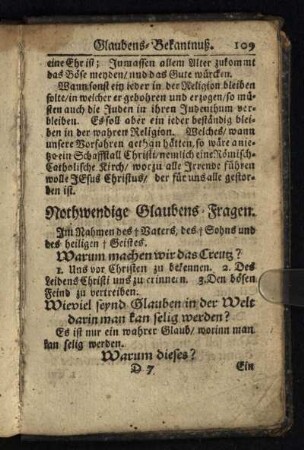 Glaubens-Bekantnuß. 109
eine Ehr ist; Inmassen allem Alter zukommt
das Böse meyden/ nud das Gute würcken.
Wann sonst ein jeder in der Religion bleiben
solte/ in welcher er gebohren und erzogen/ so mü-
sten auch die Juden in ihren Judenthum ver-
bleiben. Es soll aber ein jeder beständig blei-
ben in der wahren Religion. Welches/ wann
unsere Vorfahren gethan hätten, so wäre anje-
tzo ein Schafstall Christi/ nemlich eine Römisch-
Catholische Kirch/ worzu alle Irrende führen
wolle JEsus Christus/ der für uns alle gestor-
den ist.
Nothwendige Glaubens-Fragen.
Im Nahmen des † Vaters, des † Sohns und
des heiligen † Geistes.
Warum machen wir das Creutz?
1. Uns vor Christen zu bekennen. 2. Des
Leidens Christi uns zu erinnern. 3. Den bösen
Feind zu vertreiben.
Wieviel seynd Glauben in der Welt
darin man kan selig werden?
Es ist nur ein wahrer Glaub/ worinn man
kan selig werden.
Warum dieses?
D 7. Ein